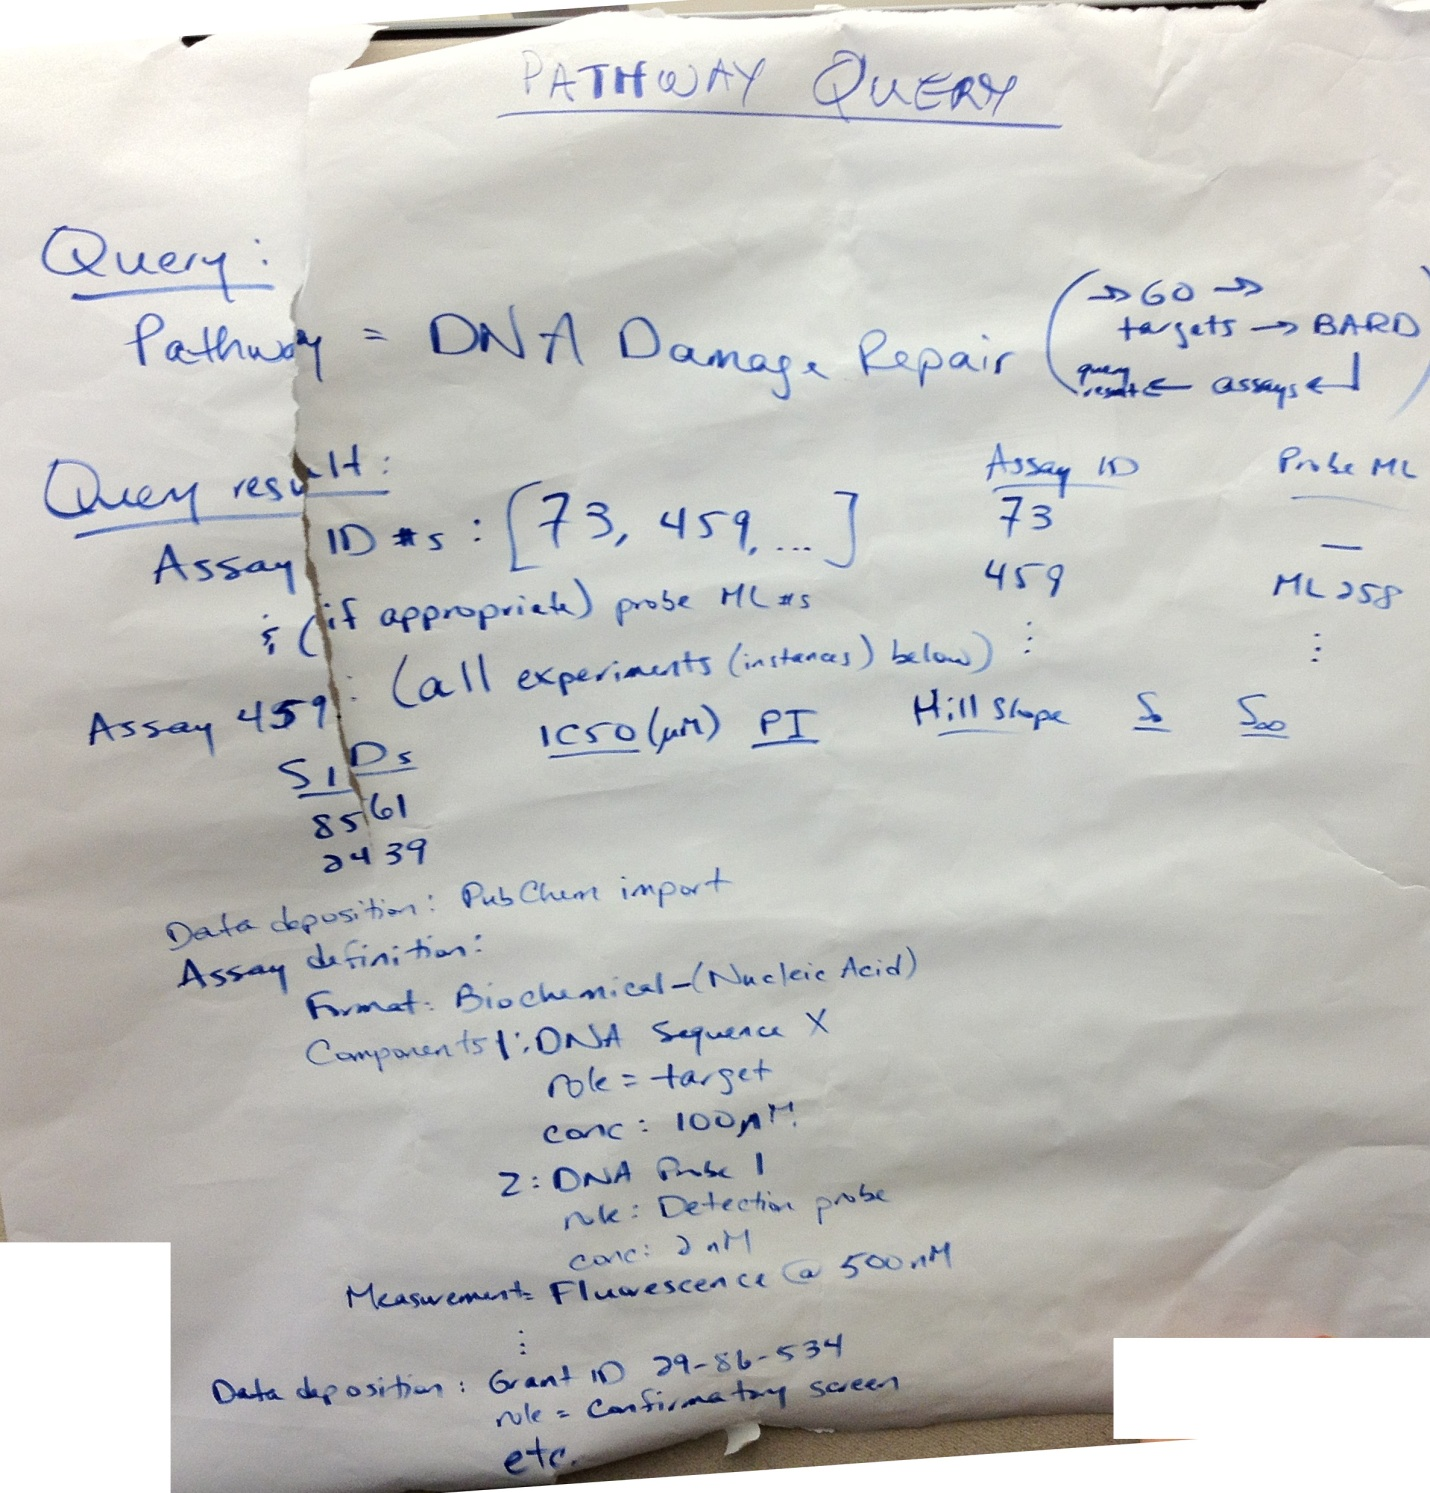 PATHWAY QUERY
Query:
Pathway = DNA Damage Repair
(→ GO →
targets → BARD
query result ← assays ↵)
Query result:
Assay ID #s : [73, 459, ...]
; (if appropriate) probe ML #s
Assay ID Probe ML
73 —
459 ML258
⋮ ⋮
Assay 459: (all experiments (instances) below)
SIDs IC50 (μM) PI Hill Slope S₀ S∞
8561
2439
Data deposition: PubChem import
Assay definition:
Format: Biochemical-(Nucleic Acid)
Components 1: DNA Sequence X
role = target
conc: 100
2: DNA Probe 1
role: Detection probe
conc: 2 nM
Measurement: Fluorescence @ 500 nM
⋮
Data deposition: Grant ID 29-86-534
role = Confirmatory screen
etc.